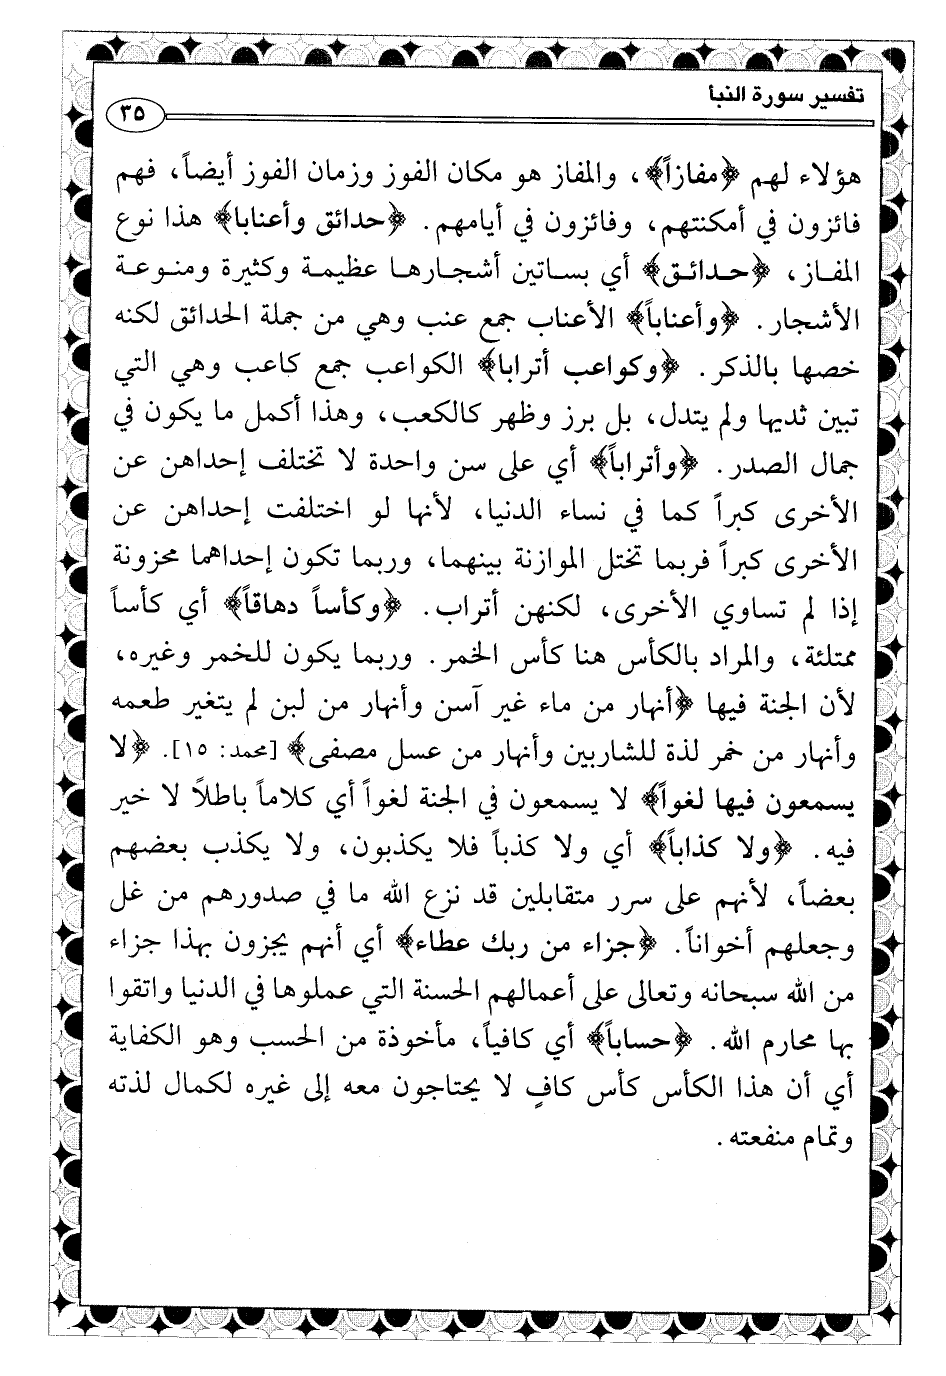 تفسير سورة النبأ
٣٥
هؤلاء لهم ﴿مفازاً﴾، والمفاز هو مكان الفوز وزمان الفوز أيضاً، فهم
فائزون في أمكنتهم، وفائزون في أيامهم. ﴿حدائق وأعنابا﴾ هذا نوع
المفاز، ﴿حدائق﴾ أي بساتين أشجارها عظيمة وكثيرة ومنوعة
الأشجار. ﴿وأعناباً﴾ الأعناب جمع عنب وهي من جملة الحدائق لكنه
خصها بالذكر. ﴿وكواعب أترابا﴾ الكواعب جمع كاعب وهي التي
تبين ثديها ولم يتدل، بل برز وظهر كالكعب، وهذا أكمل ما يكون في
جمال الصدر. ﴿وأتراباً﴾ أي على سن واحدة لا تختلف إحداهن عن
الأخرى كبراً كما في نساء الدنيا، لأنها لو اختلفت إحداهن عن
الأخرى كبراً فربما تختل الموازنة بينهما، وربما تكون إحداهما محزونة
إذا لم تساوي الأخرى، لكنهن أتراب. ﴿وكأساً دهاقاً﴾ أي كأساً
ممتلئة، والمراد بالكأس هنا كأس الخمر. وربما يكون للخمر وغيره،
لأن الجنة فيها ﴿أنهار من ماء غير آسن وأنهار من لبن لم يتغير طعمه
وأنهار من خمر لذة للشاربين وأنهار من عسل مصفى﴾ [محمد: ١٥]. ﴿لا
يسمعون فيها لغواً﴾ لا يسمعون في الجنة لغواً أي كلاماً باطلاً لا خير
فيه. ﴿ولا كذاباً﴾ أي ولا كذباً فلا يكذبون، ولا يكذب بعضهم
بعضاً، لأنهم على سرر متقابلين قد نزع الله ما في صدورهم من غل
وجعلهم أخواناً. ﴿جزاء من ربك عطاء﴾ أي أنهم يجزون بهذا جزاء
من الله سبحانه وتعالى على أعمالهم الحسنة التي عملوها في الدنيا واتقوا
بها محارم الله. ﴿حساباً﴾ أي كافياً، مأخوذة من الحسب وهو الكفاية
أي أن هذا الكأس كأس كافٍ لا يحتاجون معه إلى غيره لكمال لذته
وتمام منفعته.